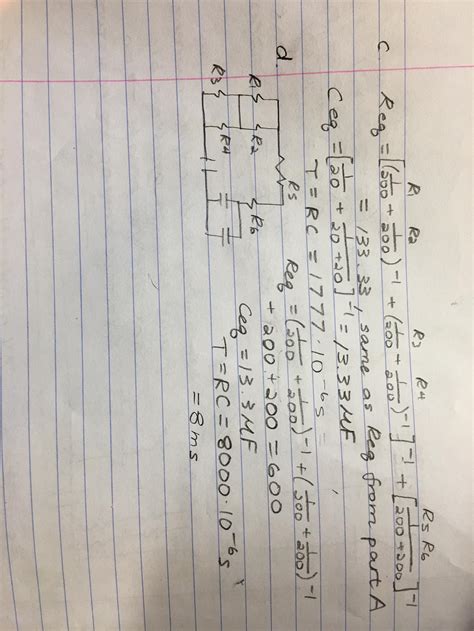 R1 R2 R3 R4 R5 R6
c. Req = [(1/300 + 1/200)^-1 + (1/200 + 1/200)^-1]^-1 + [1/200+200]^-1
= 133.33, same as Req from part A
Ceq = [1/20 + 1/20+20]^-1 = 13.33 MF
T = RC = 1777·10^-6 s
d.
R1 R2 R5
R3 R4 R6
Req = (1/300 + 1/200)^-1 + (1/300 + 1/200)^-1
+ 200 + 200 = 600
Ceq = 13.3 MF
T = RC = 8000·10^-6 s
= 8 ms